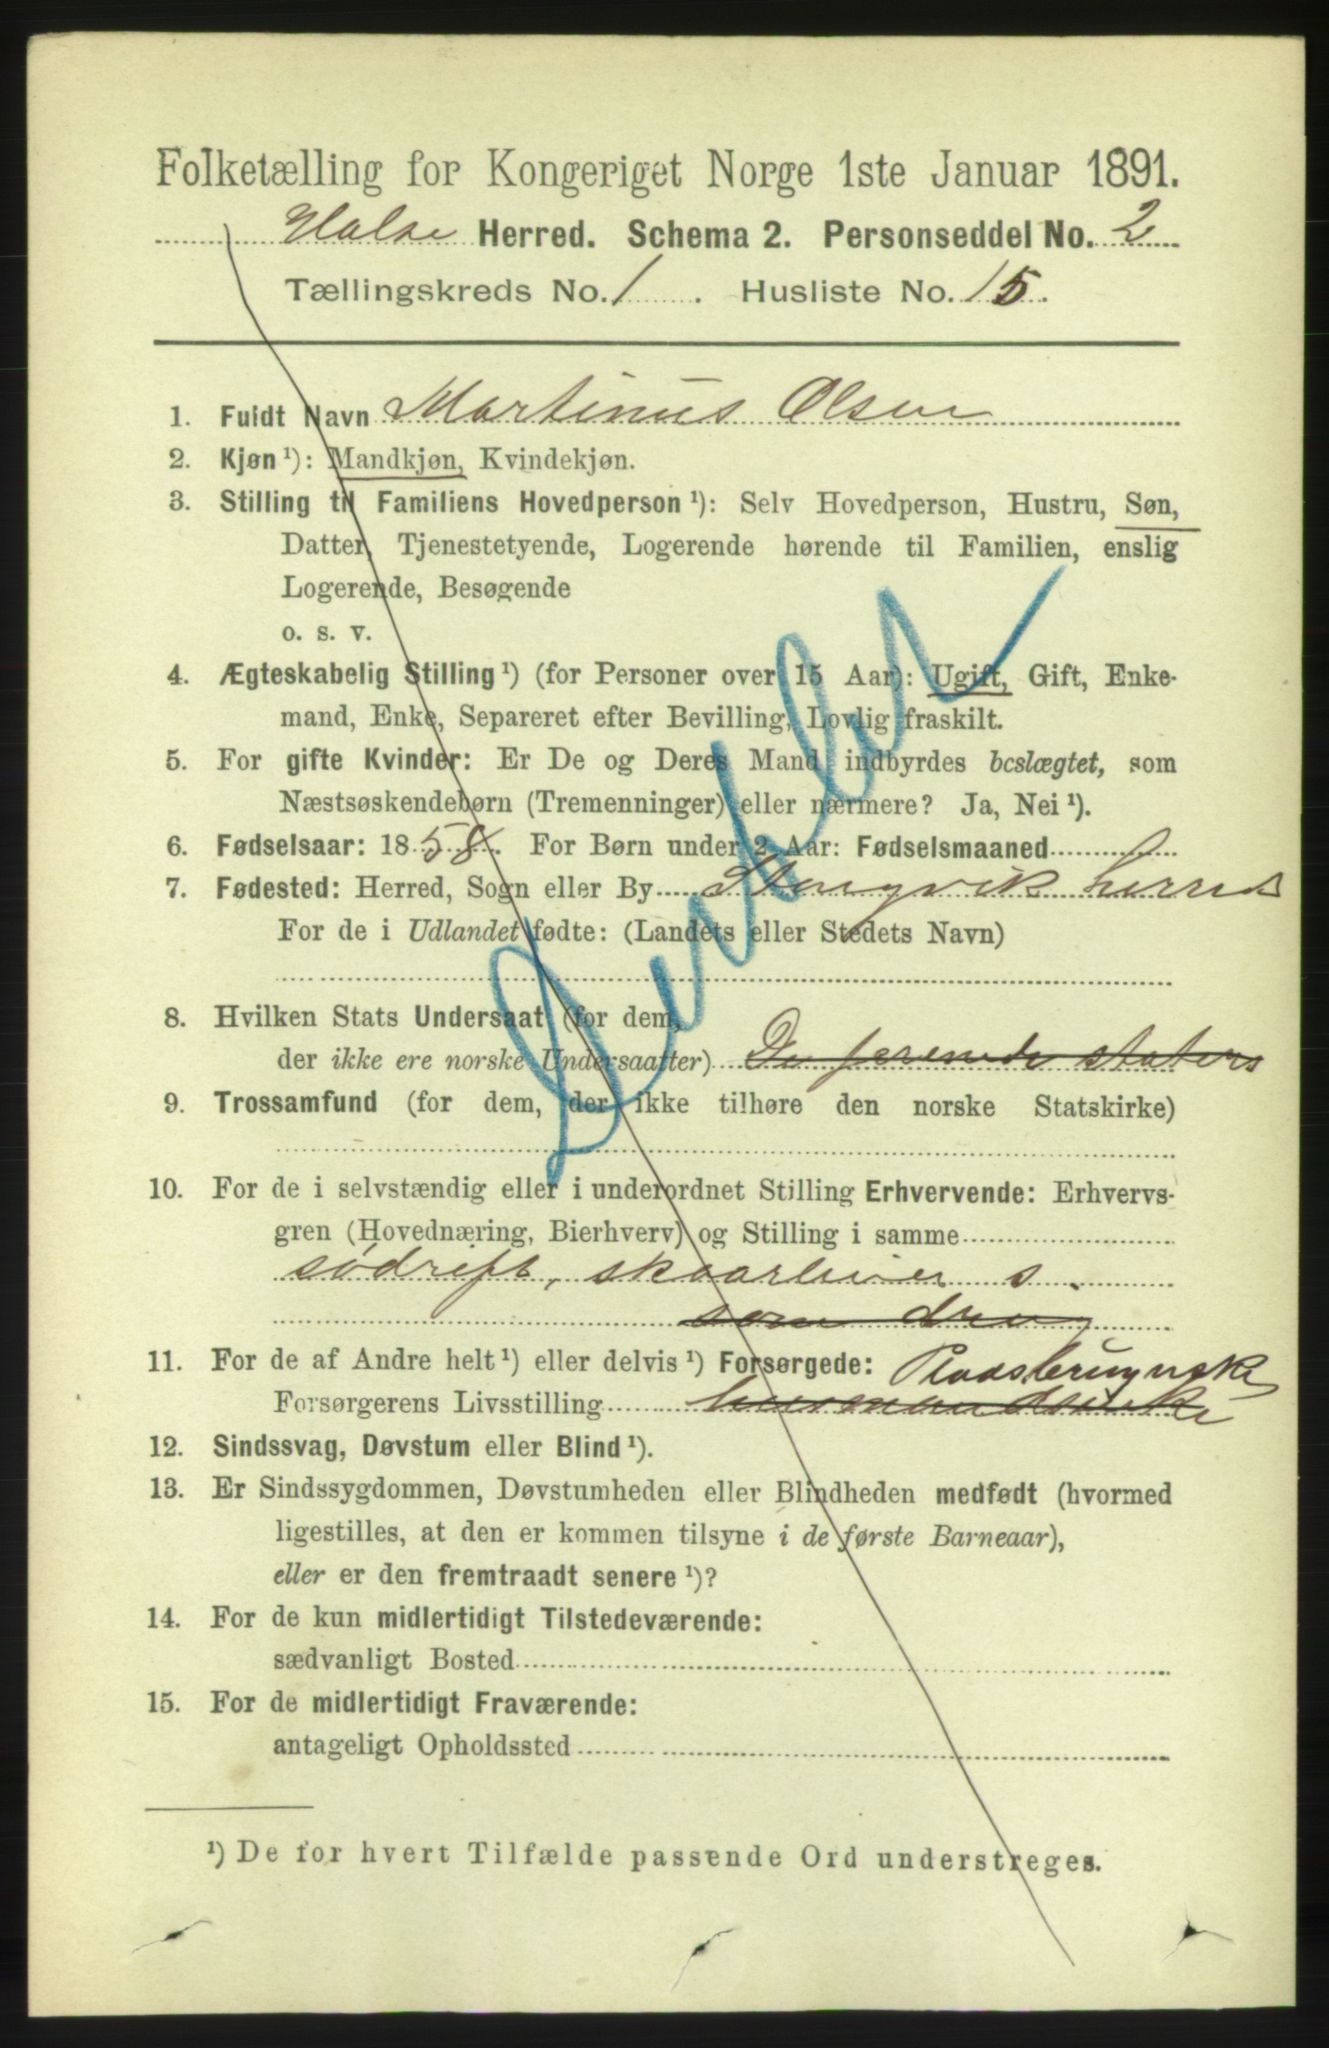 Folketælling for Kongeriget Norge 1ste Januar 1891.
Halse Herred. Schema 2. Personseddel No. 2
Tællingskreds No. 1. Husliste No. 15.
1. Fuldt Navn Martinus Olsen
2. Kjøn ¹): Mandkjøn, Kvindekjøn.
3. Stilling til Familiens Hovedperson ¹): Selv Hovedperson, Hustru, Søn,
Datter, Tjenestetyende, Logerende hørende til Familien, enslig
Logerende, Besøgende
o. s. v.
4. Ægteskabelig Stilling ¹) (for Personer over 15 Aar): Ugift, Gift, Enke-
mand, Enke, Separeret efter Bevilling, Lovlig fraskilt.
5. For gifte Kvinder: Er De og Deres Mand indbyrdes beslægtet, som
Næstsøskendebørn (Tremenninger) eller nærmere? Ja, Nei ¹).
6. Fødselsaar: 1858. For Børn under 2 Aar: Fødselsmaaned
7. Fødested: Herred, Sogn eller By Stangvik herred
For de i Udlandet fødte: (Landets eller Stedets Navn)
8. Hvilken Stats Undersaat (for dem,
der ikke ere norske Undersaatter) De forenede staters
9. Trossamfund (for dem, der ikke tilhøre den norske Statskirke)
10. For de i selvstændig eller i underordnet Stilling Erhvervende: Erhvervs-
gren (Hovednæring, Bierhverv) og Stilling i samme
s.
som
11. For de af Andre helt ¹) eller delvis ¹) Forsørgede:
Forsørgerens Livsstilling
12. Sindssvag, Døvstum eller Blind ¹).
13. Er Sindssygdommen, Døvstumheden eller Blindheden medfødt (hvormed
ligestilles, at den er kommen tilsyne i de første Barneaar),
eller er den fremtraadt senere ¹)?
14. For de kun midlertidigt Tilstedeværende:
sædvanligt Bosted
15. For de midlertidigt Fraværende:
antageligt Opholdssted
¹) De for hvert Tilfælde passende Ord understreges.